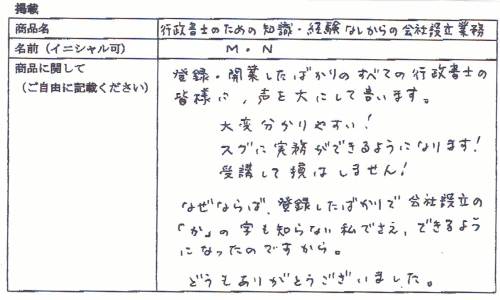 掲載
商品名 行政書士のための知識・経験なしからの会社設立業務
名前(イニシャル可) M・N
商品に関して
(ご自由に記載ください)
登録・開業したばかりのすべての行政書士の
皆様に、声を大にして言います。
大変分かりやすい!
スグに実務ができるようになります!
受講して損はしません!
なぜならば、登録したばかりで会社設立の
「か」の字も知らない私でさえ、できるよう
になったのですから。
どうもありがとうございました。